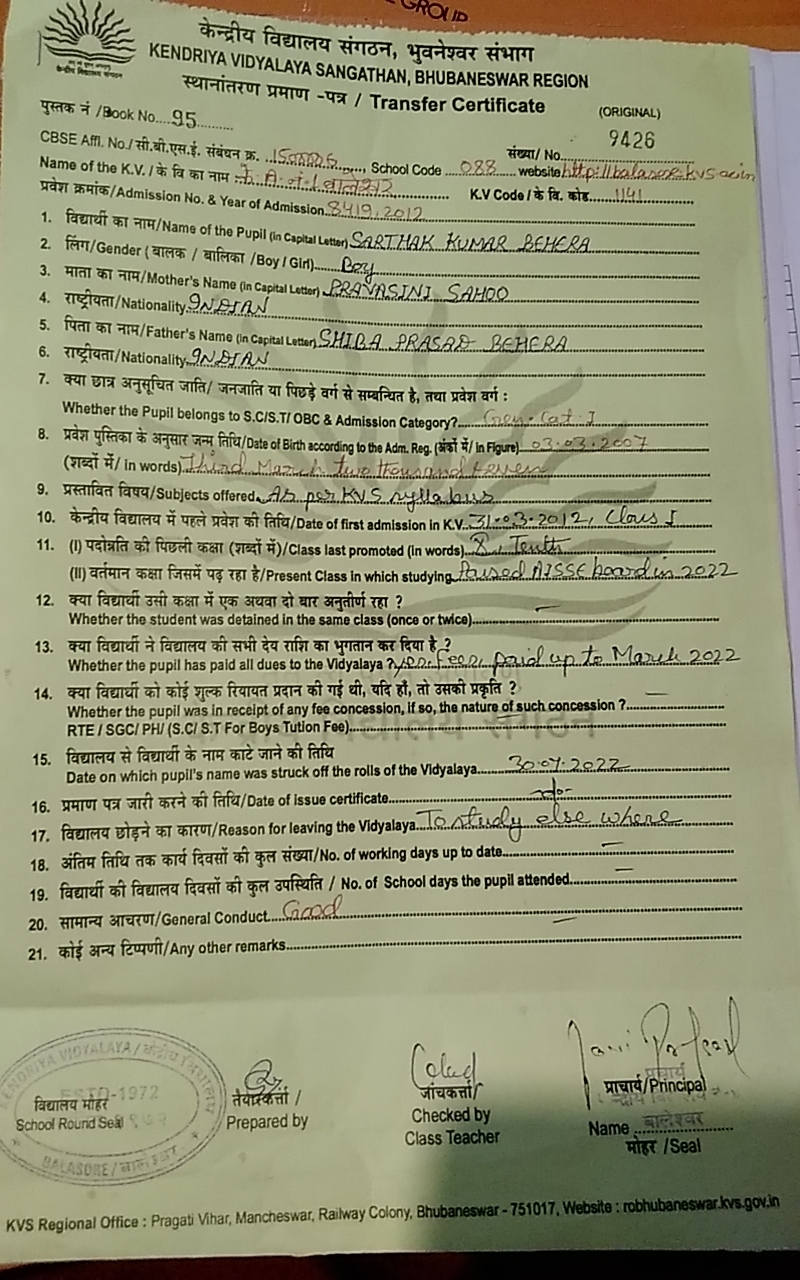 GROUP
केन्द्रीय विद्यालय संगठन, भुवनेश्वर संभाग
KENDRIYA VIDYALAYA SANGATHAN, BHUBANESWAR REGION
केन्द्रीय विद्यालय संगठन
स्थानांतरण प्रमाण -पत्र / Transfer Certificate
(ORIGINAL)
पुस्तक नं /Book No....95.........
संख्या/ No. 9426
CBSE Affl. No./सी.बी.एस.ई. संबंधन क्र. , School Code ....088.... website
Name of the K.V. / के वि का नाम : K.V Code / के वि. कोड.....1141
प्रवेश क्रमांक/Admission No. & Year of Admission 8419, 2012
1. विद्यार्थी का नाम/Name of the Pupil (in Capital Letter) SARTHAK KUMAR BEHERA
2. लिंग/Gender ( बालक / बालिका /Boy / Girl) Boy
3. माता का नाम/Mother's Name (in Capital Letter) PRAVASINI SAHOO
4. राष्ट्रीयता/Nationality INDIAN
5. पिता का नाम/Father's Name (in Capital Letter) SHIBA PRASAD BEHERA
6. राष्ट्रीयता/Nationality INDIAN
7. क्या छात्र अनुसूचित जाति/ जनजाति या पिछड़े वर्ग से सम्बन्धित है, तथा प्रवेश वर्ग :
Whether the Pupil belongs to S.C/S.T/ OBC & Admission Category? Gen. Cat - I
8. प्रवेश पुस्तिका के अनुसार जन्म तिथि/Date of Birth according to the Adm. Reg. (अंकों में/ in Figure) 03.03.2007
(शब्दों में/ in words) Third March two thousand seven
9. प्रस्तावित विषय/Subjects offered As per KVS syllabus
10. केन्द्रीय विद्यालय में पहले प्रवेश की तिथि/Date of first admission in K.V. 31.03.2012, Class I
11. (I) पदोन्नति की पिछली कक्षा (शब्दों में)/Class last promoted (in words) X, Tenth
(II) वर्तमान कक्षा जिसमें पढ़ रहा है/Present Class in which studying Passed AISSE board in 2022
12. क्या विद्यार्थी उसी कक्षा में एक अथवा दो बार अनुतीर्ण रहा ?
Whether the student was detained in the same class (once or twice) —
13. क्या विद्यार्थी ने विद्यालय की सभी देय राशि का भुगतान कर दिया है ?
Whether the pupil has paid all dues to the Vidyalaya ? Yes, Fees paid up to March 2022
14. क्या विद्यार्थी को कोई शुल्क रियायत प्रदान की गई थी, यदि हाँ, तो उसकी प्रकृति ?
Whether the pupil was in receipt of any fee concession, if so, the nature of such concession ? —
RTE / SGC/ PH/ (S.C/ S.T For Boys Tution Fee)
15. विद्यालय से विद्यार्थी के नाम काटे जाने की तिथि
Date on which pupil's name was struck off the rolls of the Vidyalaya 30.07.2022
16. प्रमाण पत्र जारी करने की तिथि/Date of issue certificate -do-
17. विद्यालय छोड़ने का कारण/Reason for leaving the Vidyalaya To study else where
18. अंतिम तिथि तक कार्य दिवसों की कुल संख्या/No. of working days up to date —
19. विद्यार्थी की विद्यालय दिवसों की कुल उपस्थिति / No. of School days the pupil attended —
20. सामान्य आचरण/General Conduct Good
21. कोई अन्य टिप्पणी/Any other remarks —
KENDRIYA VIDYALAYA / केन्द्रीय विद्यालय
ESTD-1972
BALASORE
विद्यालय मोहर
School Round Seal
तैयारकर्त्ता /
Prepared by
जांचकर्त्ता/
Checked by
Class Teacher
प्राचार्य
प्राचार्य/Principal
Name बालेश्वर
मोहर /Seal
KVS Regional Office : Pragati Vihar, Mancheswar, Railway Colony, Bhubaneswar - 751017, Website : robhubaneswar.kvs.gov.in